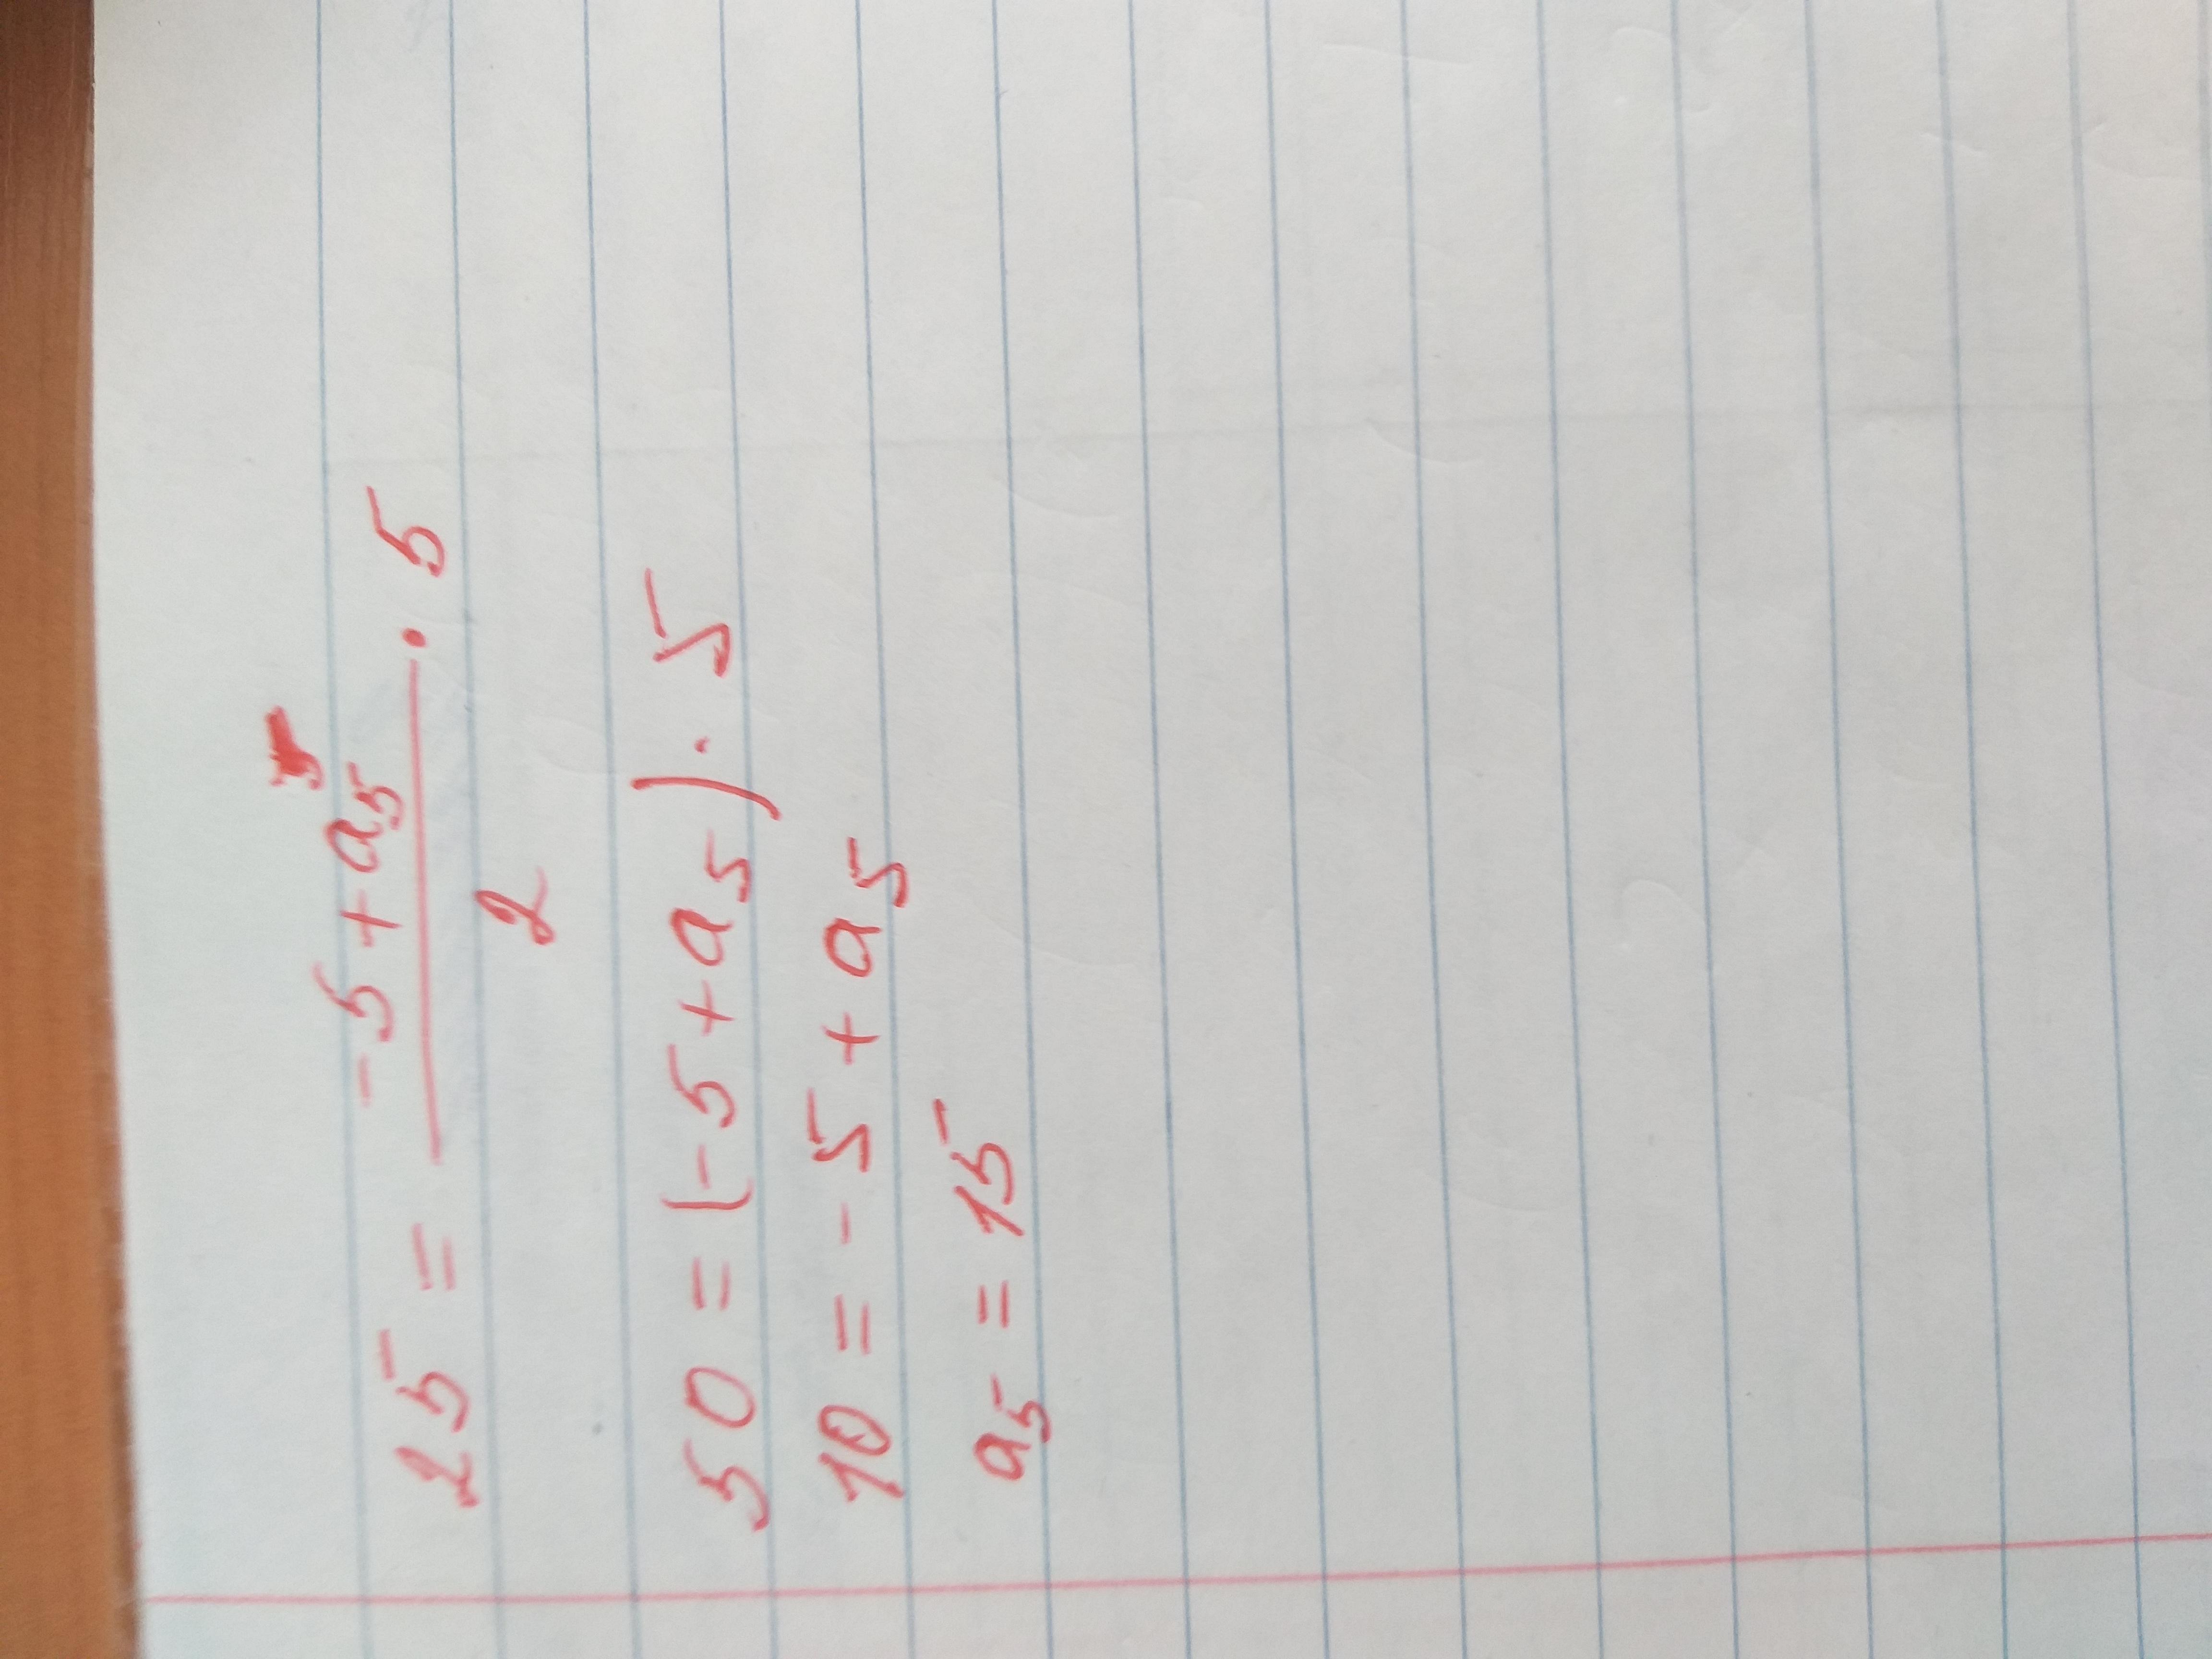 25 = (-5 + a₅)/2 · 5
50 = (-5 + a₅) · 5
10 = -5 + a₅
a₅ = 15